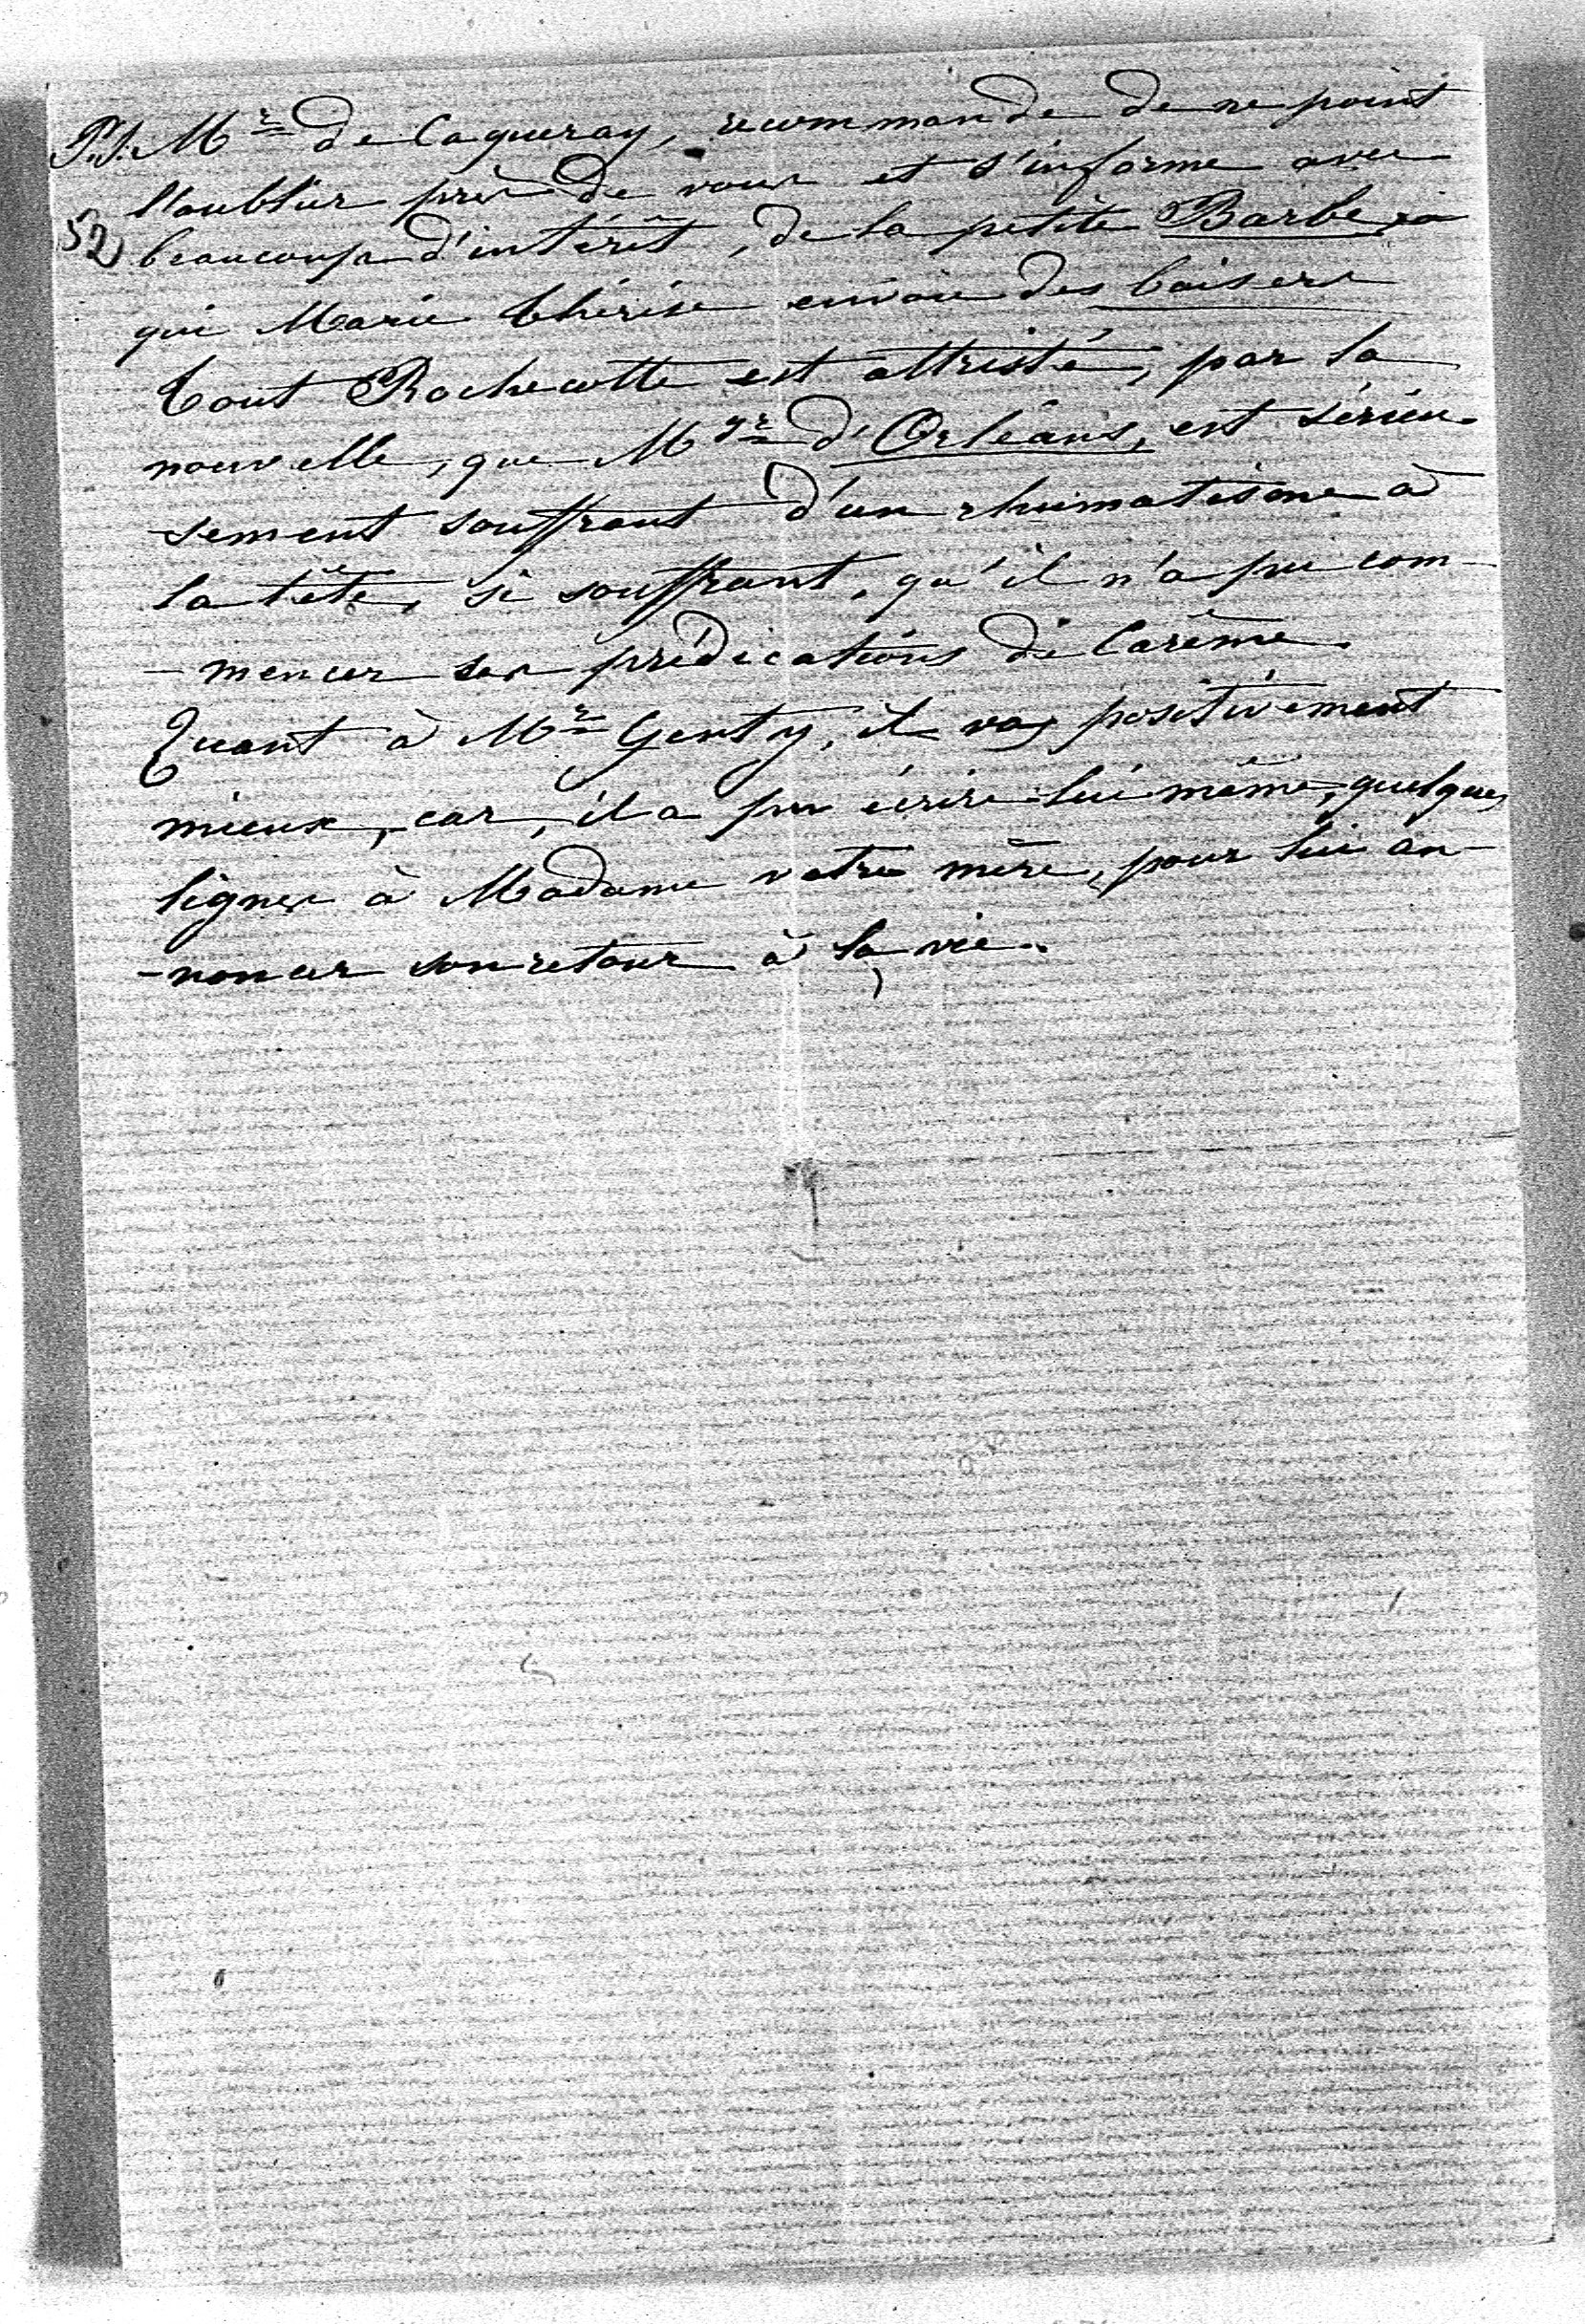 P.S. Mr de Caqueray, recommande de ne point
l'oublier près de vous et s'informe avec
52) beaucoup d'intérêt, de la petite Barbe, à
qui Marie Thérèse envoie des baisers
Tout Rochecotte est attristé, par la
nouvelle, que Mgr d'Orléans, est sérieu-
-sement souffrant d'un rhumatisme à
la tête, si souffrant, qu'il n'a pu com-
-mencer ses prédications de Carême.
Quant à Mr Genty, il va, positivement
mieux, car, il a pu écrire lui même, quelques
lignes à Madame votre mère, pour lui an-
-noncer son retour à la vie.